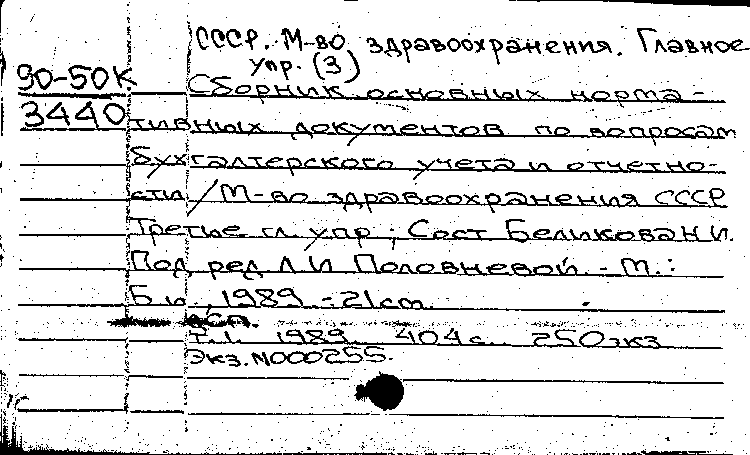 СССР. М-во здравоохранения. Главное
упр. (3)
90-50К
3440
Сборник основных норма-
тивных документов по вопросам
бухгалтерского учета и отчетно-
сти / М-во здравоохранения СССР
Третье гл. упр ; Сост Беликова Н И.
Под ред Л И Половневой. - М.:
Б и , 1989. - 21 см.
Т. 1. 1989. 404 с. 250 экз
Экз. N000255.